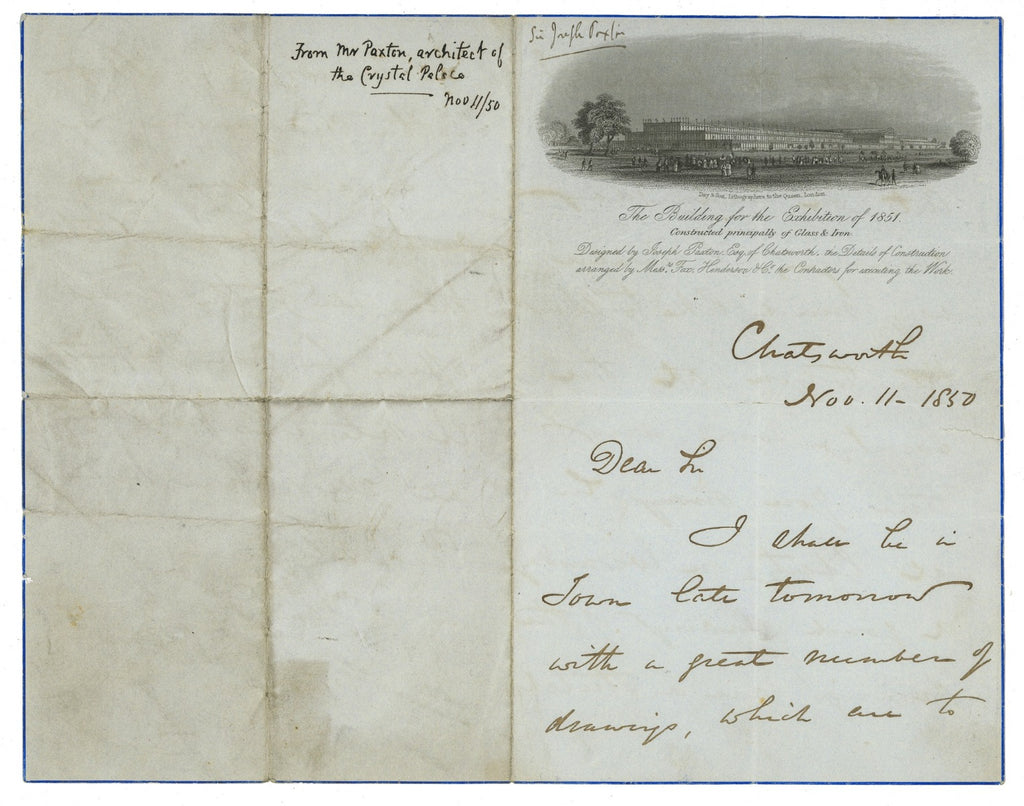 From Mr Paxton, architect of
the Crystal Palace
Nov 11/50
Sir Joseph Paxton
Day & Son, Lithographers to the Queen, London
The Building for the Exhibition of 1851.
Constructed principally of Glass & Iron
Designed by Joseph Paxton Esq. of Chatsworth, the Details of Construction
arranged by Messrs. Fox, Henderson & Co. the Contractors for executing the Work.
Chatsworth
Nov. 11 - 1850
Dear Sir
I shall be in
Town late tomorrow
with a great number of
drawings, which are to